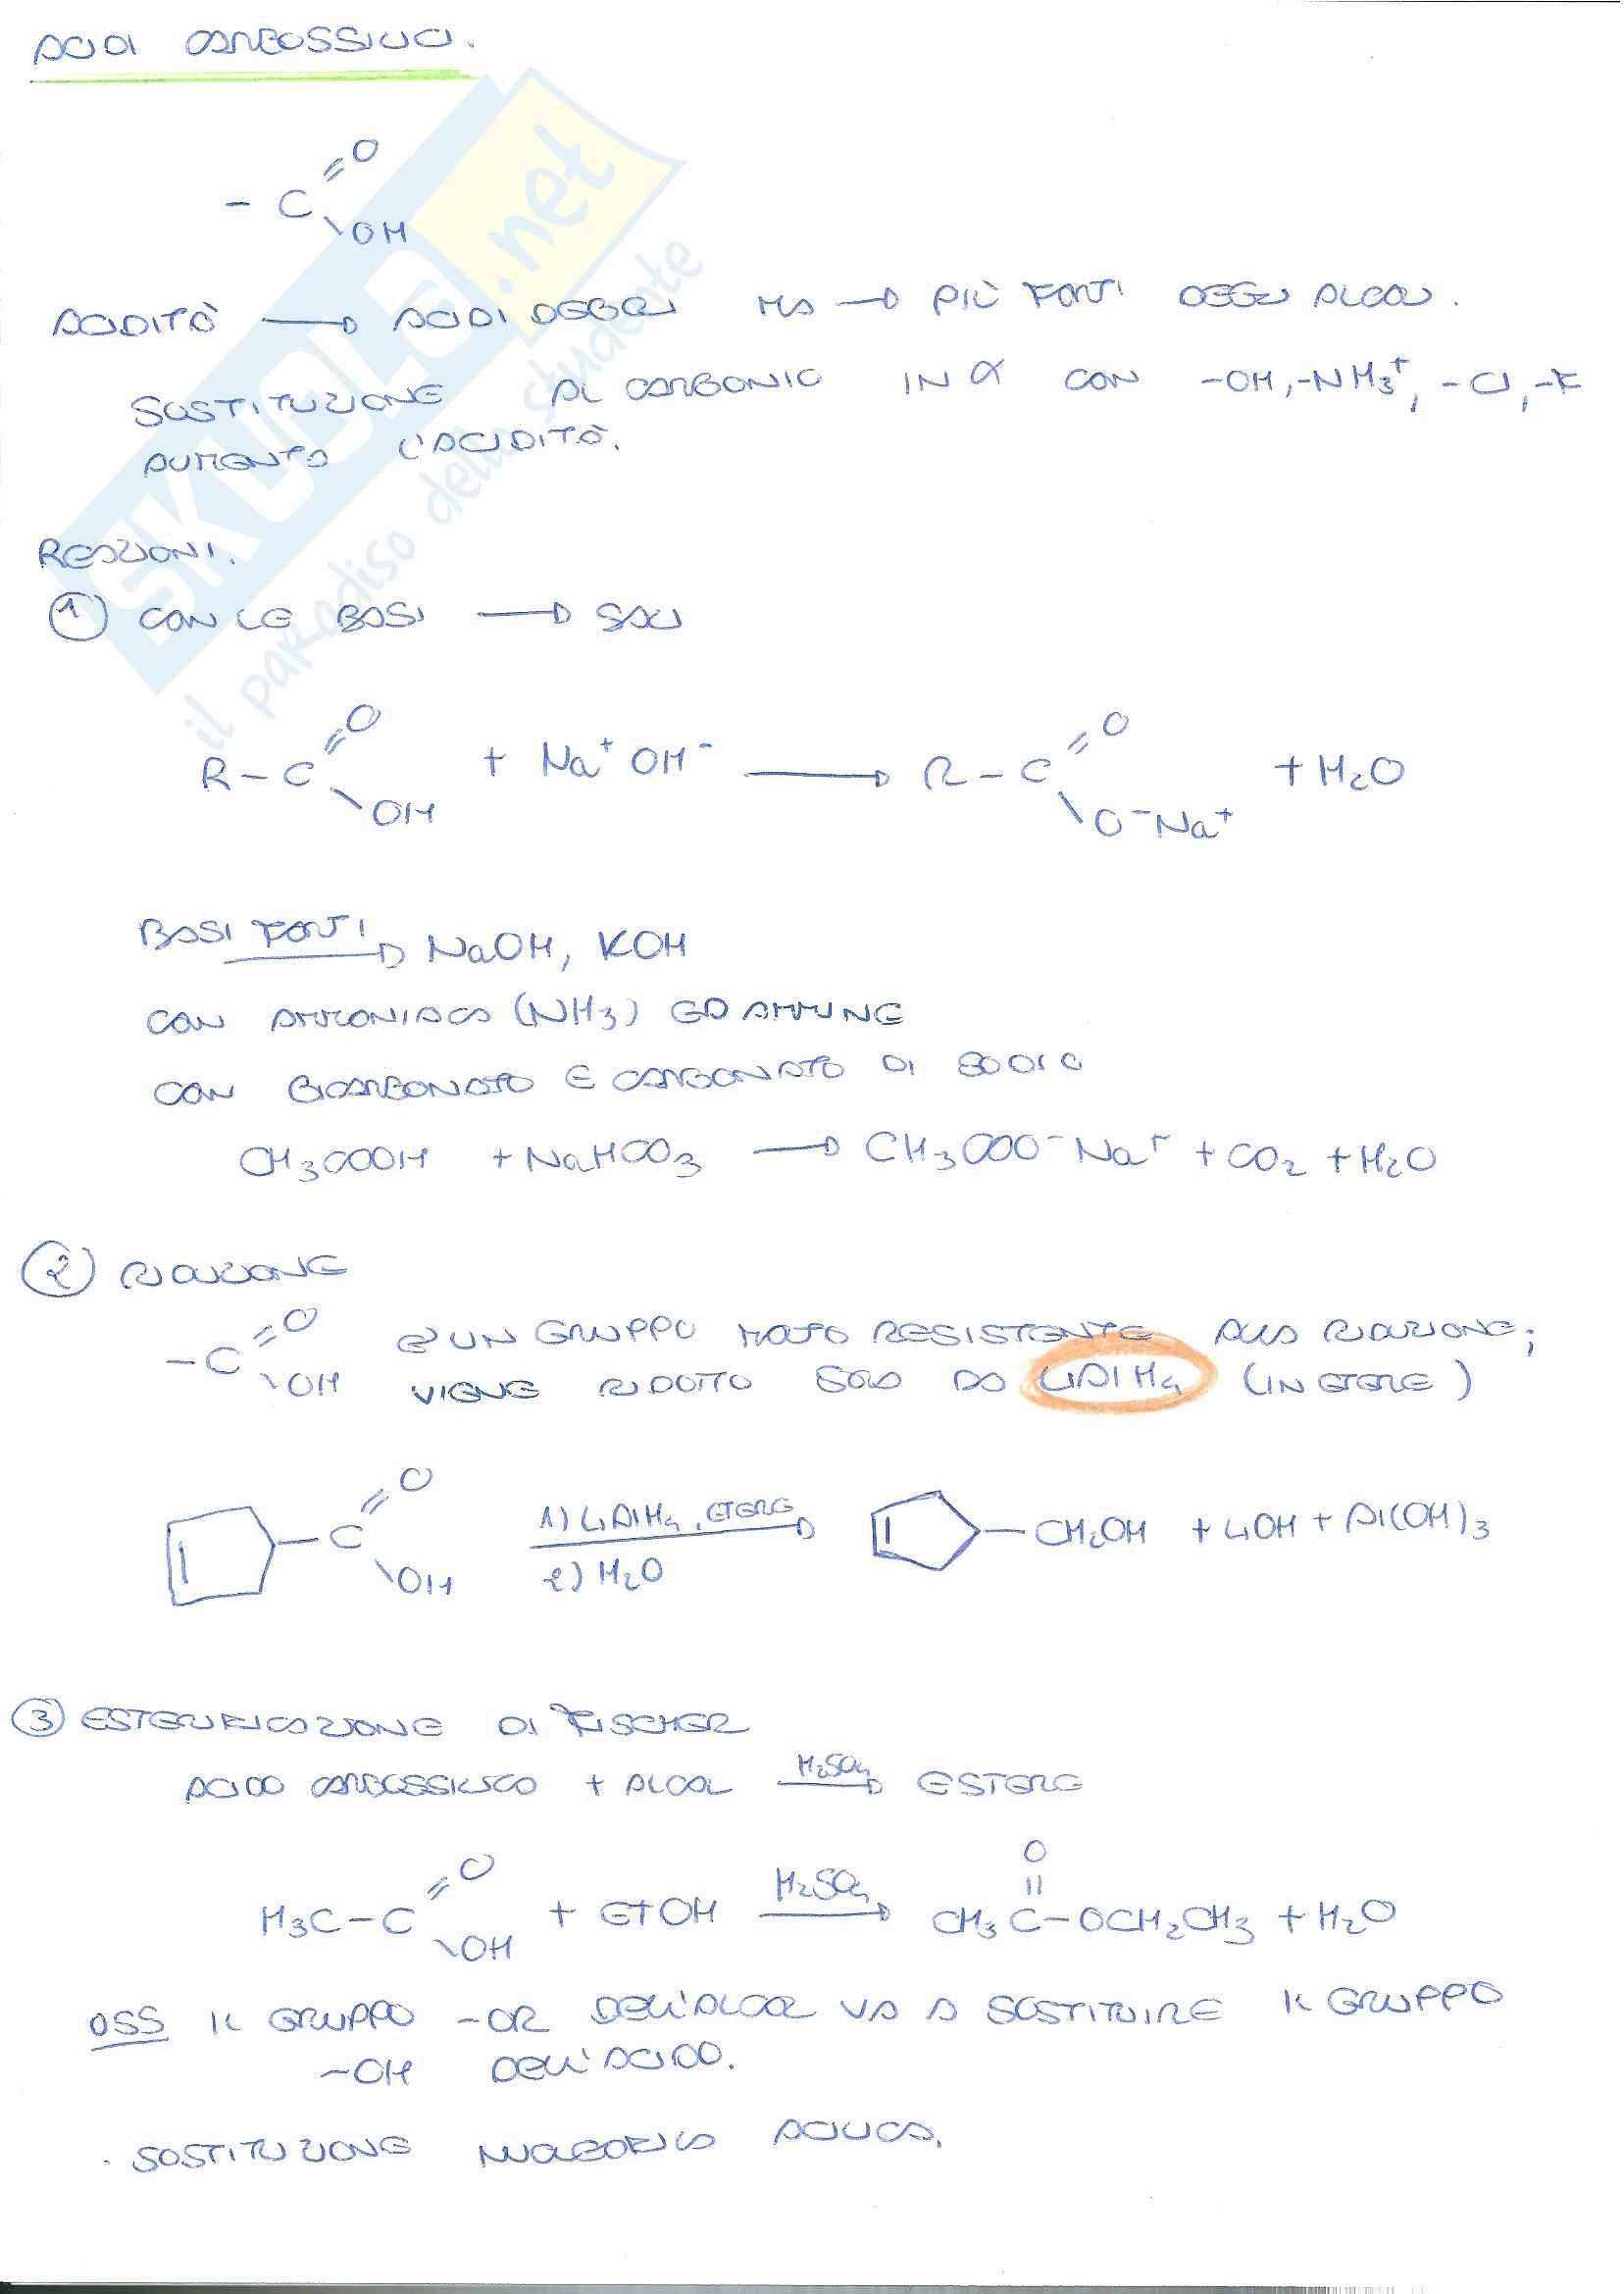 ACIDI CARBOSSILICI.
SKUOLA.net
il paradiso dello studente
- C =O \OH
ACIDITÀ → ACIDI DEBOLI MA → PIÙ FORTI DEGLI ALCOLI.
SOSTITUZIONE AL CARBONIO IN α CON -OH, -NH3+, -Cl, -F
AUMENTA L'ACIDITÀ.
REAZIONI.
1 CON LE BASI → SALI
R-C =O \OH + Na+ OH- → R-C =O \O-Na+ + H2O
BASI FORTI → NaOH, KOH
CON AMMONIACA (NH3) ED AMMINE
CON BICARBONATO E CARBONATO DI SODIO
CH3COOH + NaHCO3 → CH3COO-Na+ + CO2 + H2O
2 RIDUZIONE
-C =O \OH È UN GRUPPO MOLTO RESISTENTE ALLA RIDUZIONE;
VIENE RIDOTTO SOLO DA LiAlH4 (IN ETERE)
-C =O \OH 1) LiAlH4, ETERE 2) H2O → -CH2OH + LiOH + Al(OH)3
3 ESTERIFICAZIONE DI FISCHER
ACIDO CARBOSSILICO + ALCOL H2SO4 → ESTERE
H3C-C =O \OH + EtOH H2SO4 → CH3C(=O)-OCH2CH3 + H2O
OSS IL GRUPPO -OR DELL'ALCOL VA A SOSTITUIRE IL GRUPPO
-OH DELL'ACIDO.
· SOSTITUZIONE NUCLEOFILA ACILICA.